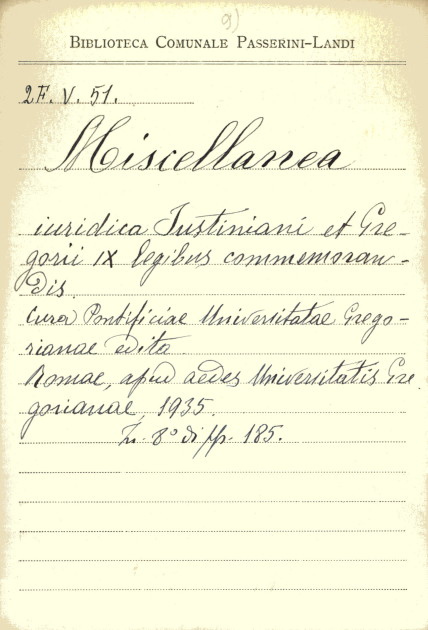 9)
BIBLIOTECA COMUNALE PASSERINI-LANDI
2F. V. 51.
Miscellanea
iuridica Iustiniani et Gre-
gorii IX legibus commemoran-
dis
cura Pontificiae Universitatae Grego-
rianae edita
Romae, apud aedes Universitatis Gre
gorianae, 1935.
in 8° di pp. 185.